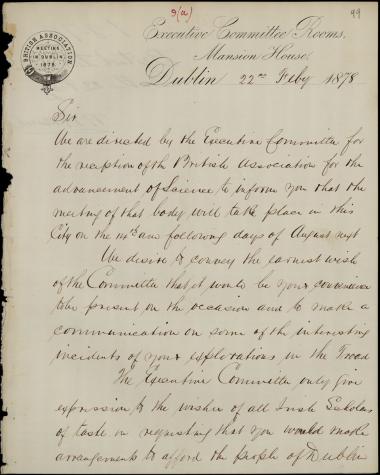 9(a)
99
BRITISH ASSOCIATION
MEETING
IN DUBLIN
1878
Executive Committee Rooms,
Mansion House,
Dublin 22nd Feby 1878
Sir
We are directed by the Executive Committee for
the reception of the British Association for the
advancement of Science to inform you that the
meeting of that body will take place in this
City on the 14th and following days of August next
We desire to convey the earnest wish
of the Committee that it would be your convenience
to be present on the occasion and to make a
communication on some of the interesting
incidents of your explorations in the Troad
The Executive Committee only give
expression to the wishes of all Irish Scholars
of taste in requesting that you would make
arrangements to afford the people of Dublin